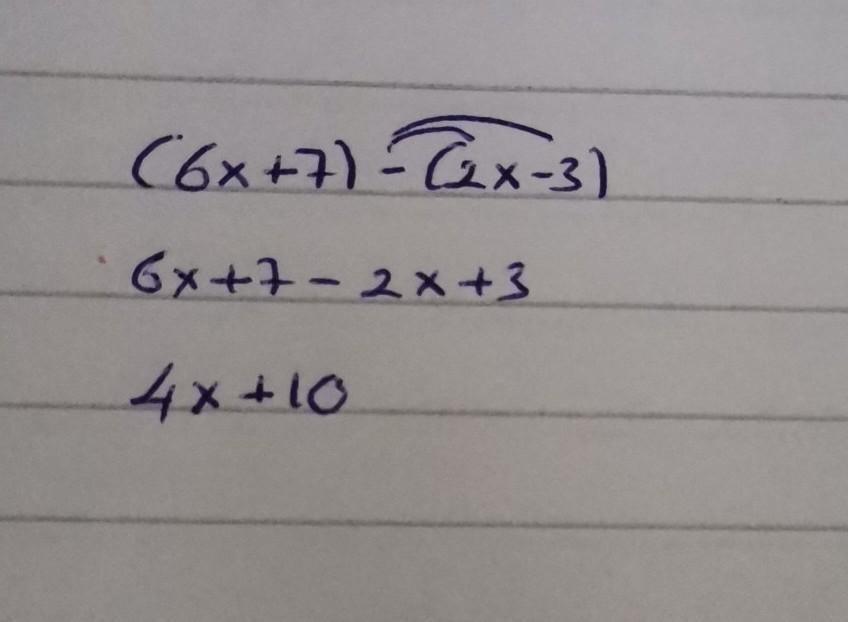 (6x+7)-(2x-3)
6x+7-2x+3
4x+10